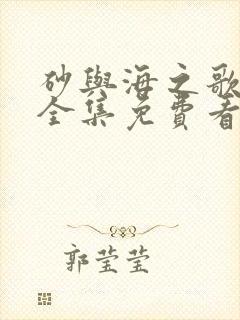 砂與海之歌
全集免費看
郭莹莹